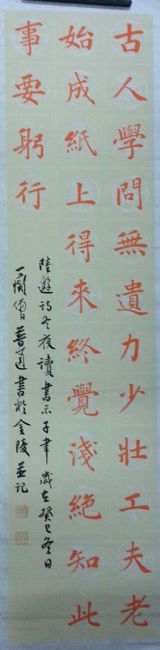 古人學問無遺力少壯工夫老
始成紙上得來終覺淺絕知此
事要躬行
陸遊詩冬夜讀書示子聿歲在癸巳冬日
善道書於金陵並記